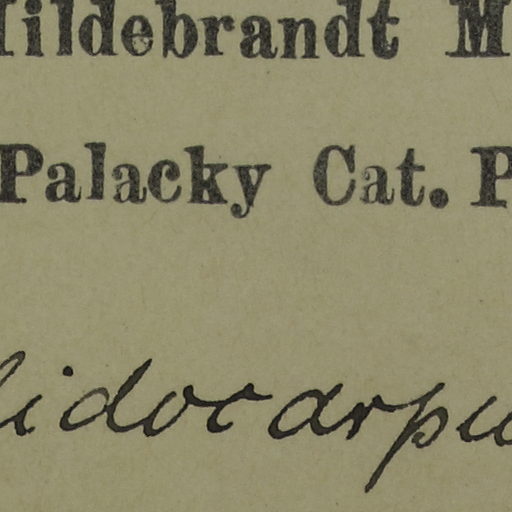 Hildebrandt M
Palacky Cat. P
lidocarpu